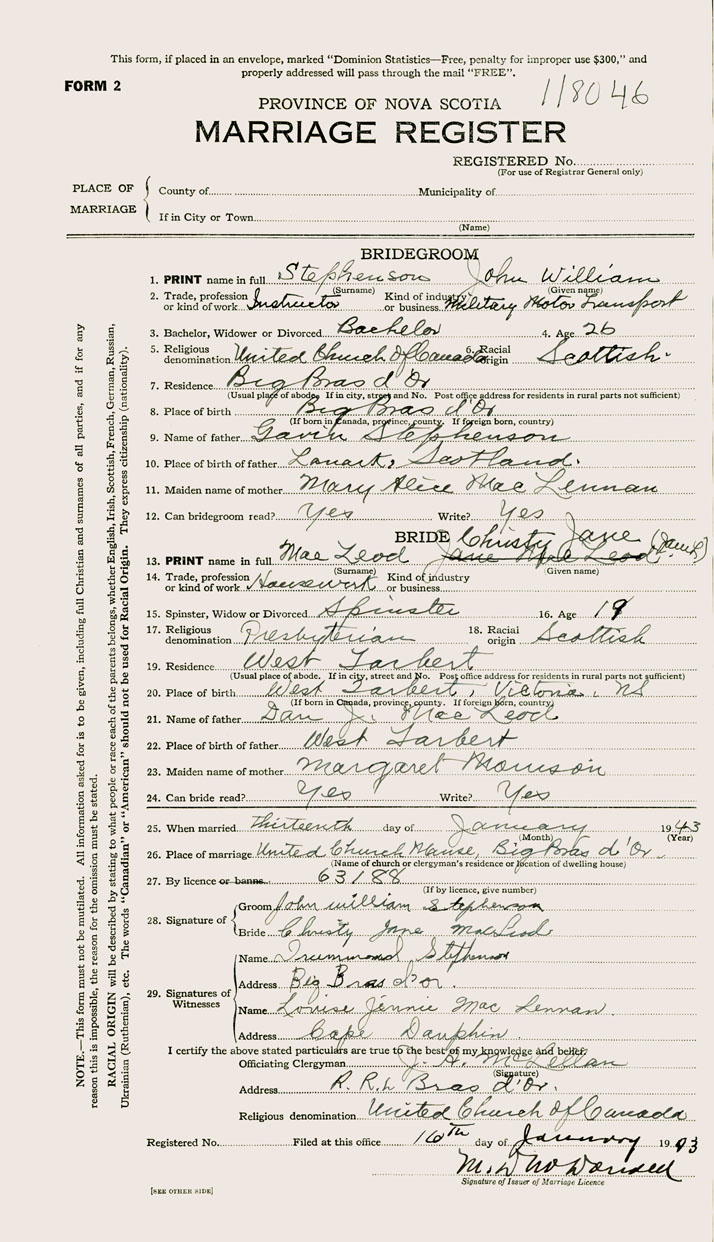 This form, if placed in an envelope, marked "Dominion Statistics—Free, penalty for improper use $300," and
properly addressed will pass through the mail "FREE".
FORM 2
118046
PROVINCE OF NOVA SCOTIA
MARRIAGE REGISTER
REGISTERED No.
(For use of Registrar General only)
PLACE OF MARRIAGE
County of Municipality of
If in City or Town
(Name)
BRIDEGROOM
1. PRINT name in full Stephenson John William
(Surname) (Given name)
2. Trade, profession or kind of work Instructor Kind of industry or business Military Motor Transport
3. Bachelor, Widower or Divorced Bachelor 4. Age 26
5. Religious denomination United Church of Canada 6. Racial origin Scottish.
7. Residence Big Bras d'Or
(Usual place of abode. If in city, street and No. Post office address for residents in rural parts not sufficient)
8. Place of birth Big Bras d'Or
(If born in Canada, province, county. If foreign born, country)
9. Name of father Gavin Stephenson
10. Place of birth of father Lanark, Scotland.
11. Maiden name of mother Mary Alice Mac Lennan
12. Can bridegroom read? Yes Write? Yes
BRIDE Christy Jane
13. PRINT name in full Mac Leod Jane Mac Leod
(Surname) (Given name)
14. Trade, profession or kind of work Housework Kind of industry or business
15. Spinster, Widow or Divorced Spinster 16. Age 19
17. Religious denomination Presbyterian 18. Racial origin Scottish
19. Residence West Tarbert
(Usual place of abode. If in city, street and No. Post office address for residents in rural parts not sufficient)
20. Place of birth West Tarbert, Victoria, NS
(If born in Canada, province, county. If foreign born, country)
21. Name of father Dan J. Mac Leod
22. Place of birth of father West Tarbert
23. Maiden name of mother Margaret Morrison
24. Can bride read? Yes Write? Yes
25. When married thirteenth day of January 1943
(Month) (Year)
26. Place of marriage United Church Manse, Big Bras d'Or.
(Name of church or clergyman's residence or location of dwelling house)
27. By licence or banns 63188
(If by licence, give number)
28. Signature of
Groom John William Stephenson
Bride Christy Jane MacLeod
29. Signatures of Witnesses
Name Drummond Stephenson
Address Big Bras d'or.
Name Louise Jennie Mac Lennan.
Address Cape Dauphin
I certify the above stated particulars are true to the best of my knowledge and belief.
Officiating Clergyman J. A. McLellan
(Signature)
Address R. R. 1 Bras d'Or.
Religious denomination United Church of Canada
Registered No. Filed at this office 16th day of January 1943
Signature of Issuer of Marriage Licence
[SEE OTHER SIDE]
NOTE.—This form must not be mutilated. All information asked for is to be given, including full Christian and surnames of all parties, and if for any
reason this is impossible, the reason for the omission must be stated.
RACIAL ORIGIN will be described by stating to what people or race each of the parents belongs, whether English, Irish, Scottish, French, German, Russian,
Ukrainian (Ruthenian), etc. The words "Canadian" or "American" should not be used for Racial Origin. They express citizenship (nationality).